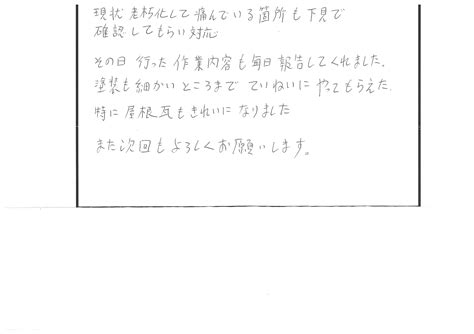 現状 老朽化して痛んでいる箇所も下見で
確認してもらい対応
その日 行った 作業内容も毎日報告してくれました。
塗装も細かいところまで ていねいに やってもらえた。
特に 屋根瓦もきれいに なりました
また次回も よろしくお願いします。